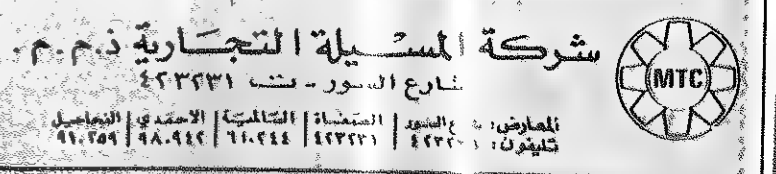 شركة المسيلة التجارية ذ.م.م.
شارع السور - ت ٤٢٣٢٣١
MTC
المعارض: ع السور | الصفاة | السالمية | الاحمدي | الفحاحيل
تليفون: ٤٢٣٢٣١ | ٤٢٣٢٣١ | ٦١٠٢٤٤ | ٩٨٠٩٤٢ | ٩١٠٢٥٩